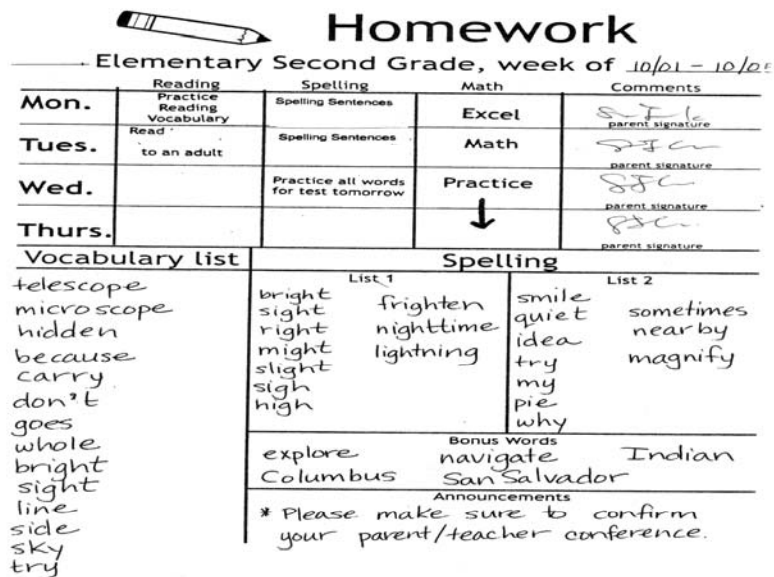 Homework
Elementary Second Grade, week of 10/01 - 10/05
Reading Spelling Math Comments
Mon. Practice Reading Vocabulary Spelling Sentences Excel
parent signature
Tues. Read to an adult Spelling Sentences Math
parent signature
Wed. Practice all words for test tomorrow Practice
parent signature
Thurs.
parent signature
Vocabulary list
telescope
microscope
hidden
because
carry
don't
goes
whole
bright
sight
line
side
sky
try
Spelling
List 1
bright
sight
right
might
slight
sigh
high
frighten
nighttime
lightning
List 2
smile
quiet
idea
try
my
pie
why
sometimes
nearby
magnify
Bonus Words
explore navigate Indian
Columbus San Salvador
Announcements
* Please make sure to confirm
your parent/teacher conference.